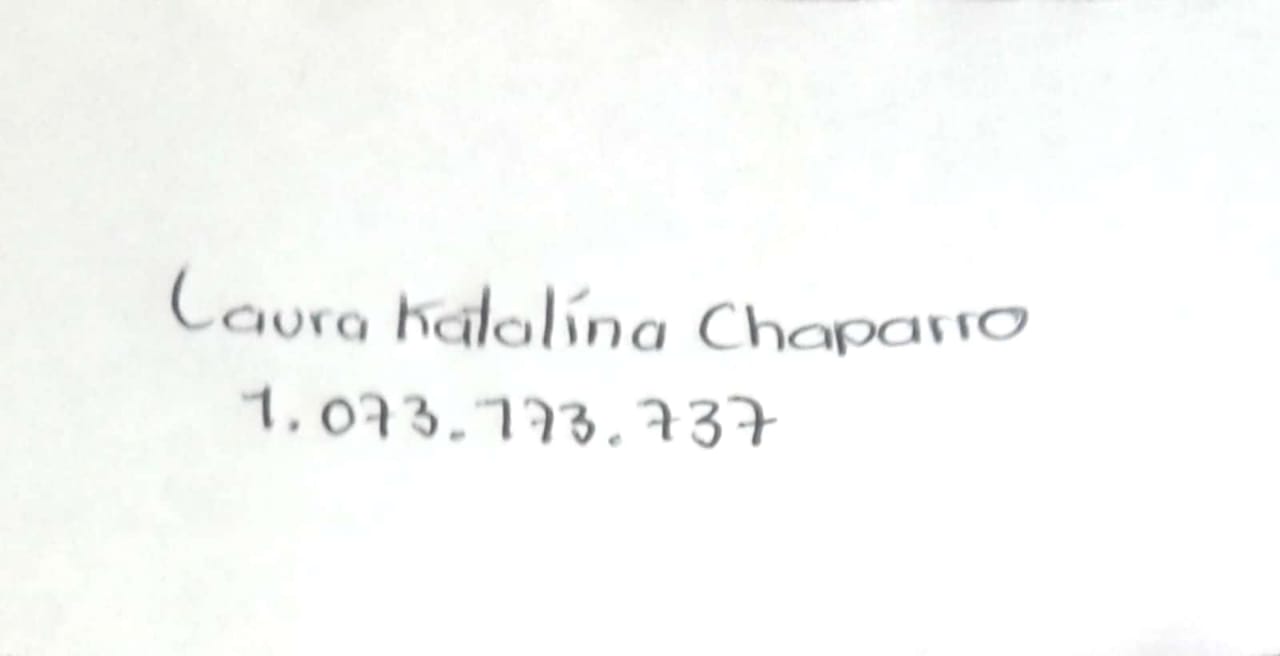 Laura Katalina Chaparro
1.073.173.737